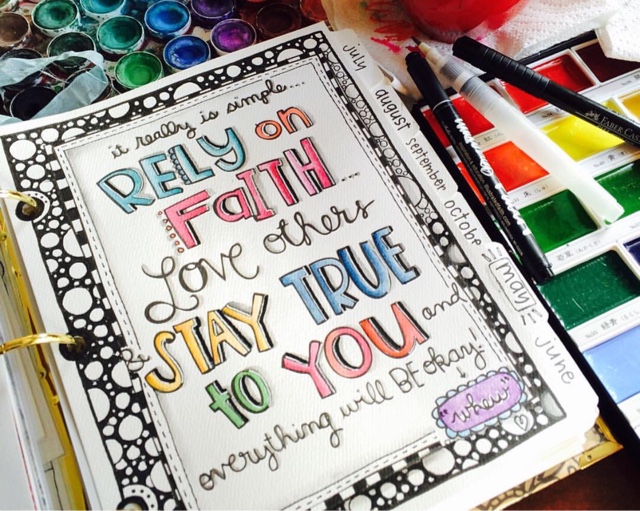 it really is simple...
RELY on
FaITH...
Love others
& STAY TRUE
to YOU and
everything will BE okay!
"whew"
july
august
september
october
may
june
FABER-CASTELL